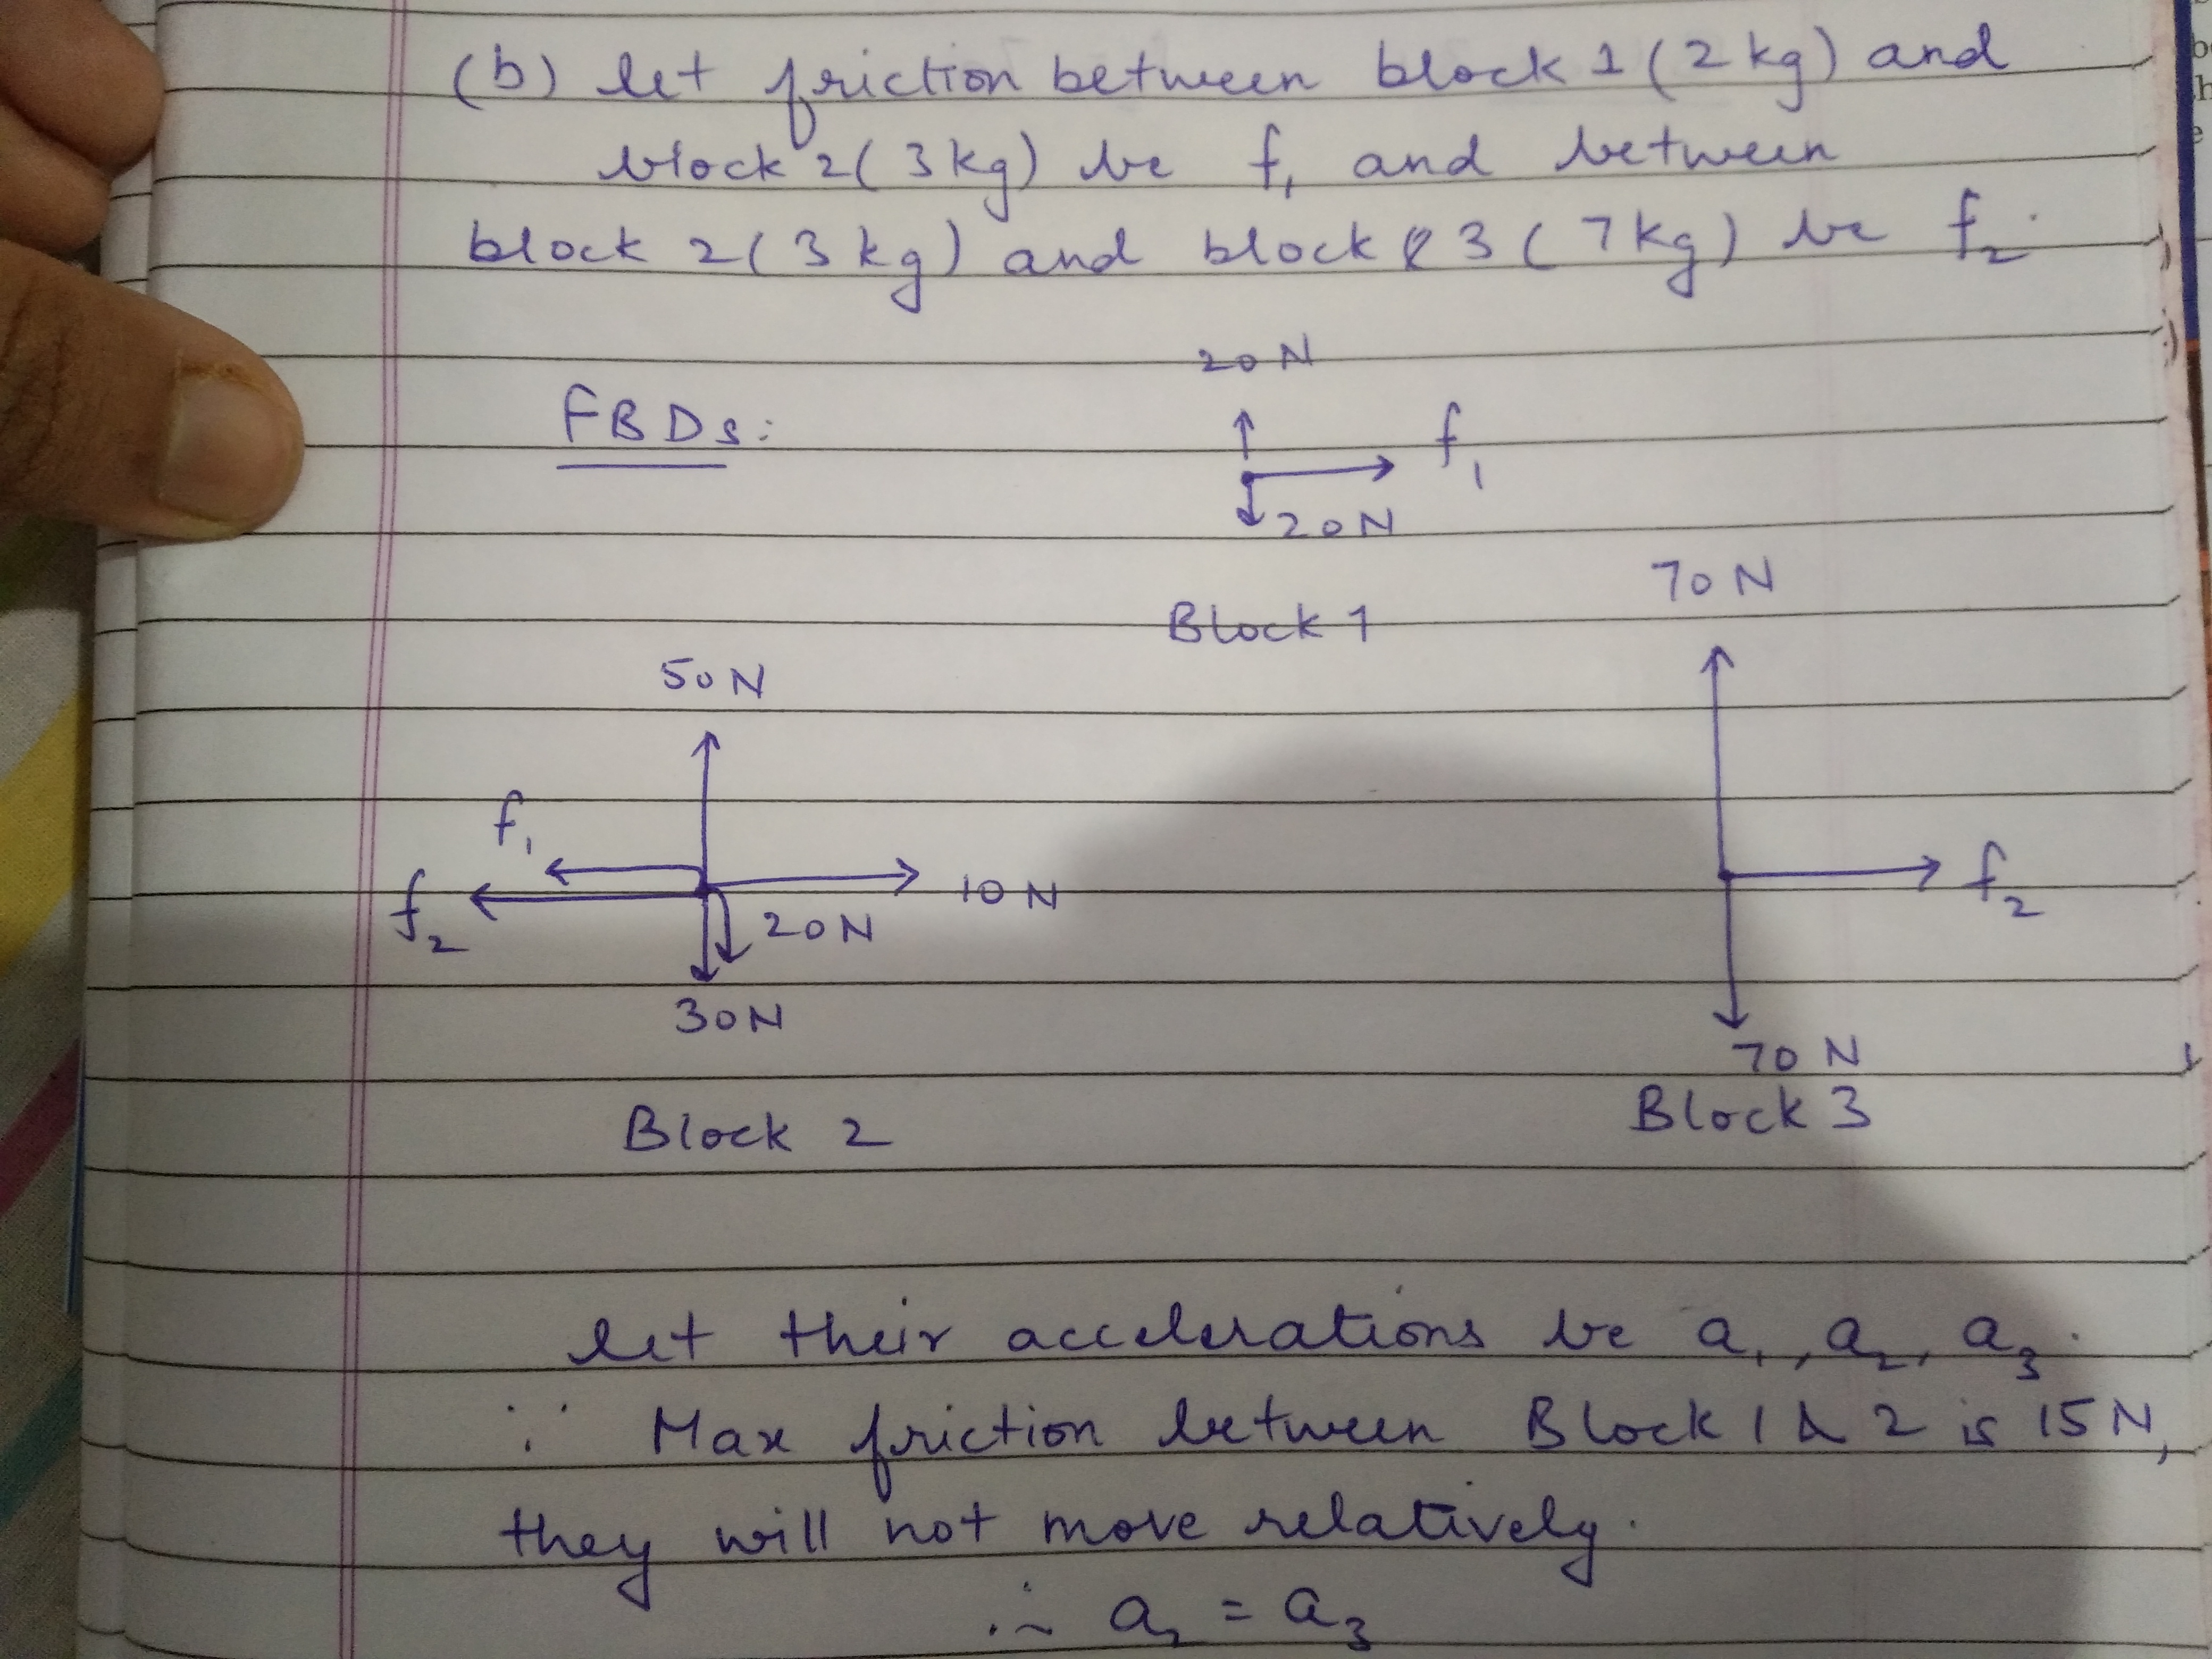 (b) let friction between block 1 (2 kg) and
block 2 (3 kg) be f₁ and between
block 2 (3 kg) and block 3 (7 kg) be f₂.
20 N
FBDs:
f₁
20 N
Block 1
70 N
50 N
f₁
10 N
f₂
f₂
20 N
30 N
70 N
Block 2
Block 3
let their accelerations be a₁, a₂, a₃.
∵ Max friction between Block 1 & 2 is 15 N,
they will not move relatively.
∴ a₂ = a₃